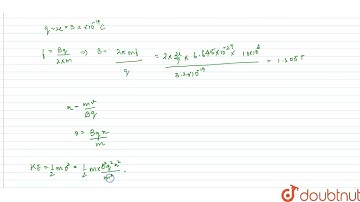 q = 2e = 3.2 × 10⁻¹⁹ C
f = Bq / 2πm ⇒ B = 2πmf / q = 2 × 22/7 × 6.645 × 10⁻²⁷ × 10⁸ / 3.2 × 10⁻¹⁹ = 1.305 T
r = mv / Bq
v = Bqr / m
KE = 1/2 mv² = 1/2 m × B²q²r² / m²
doubtnut